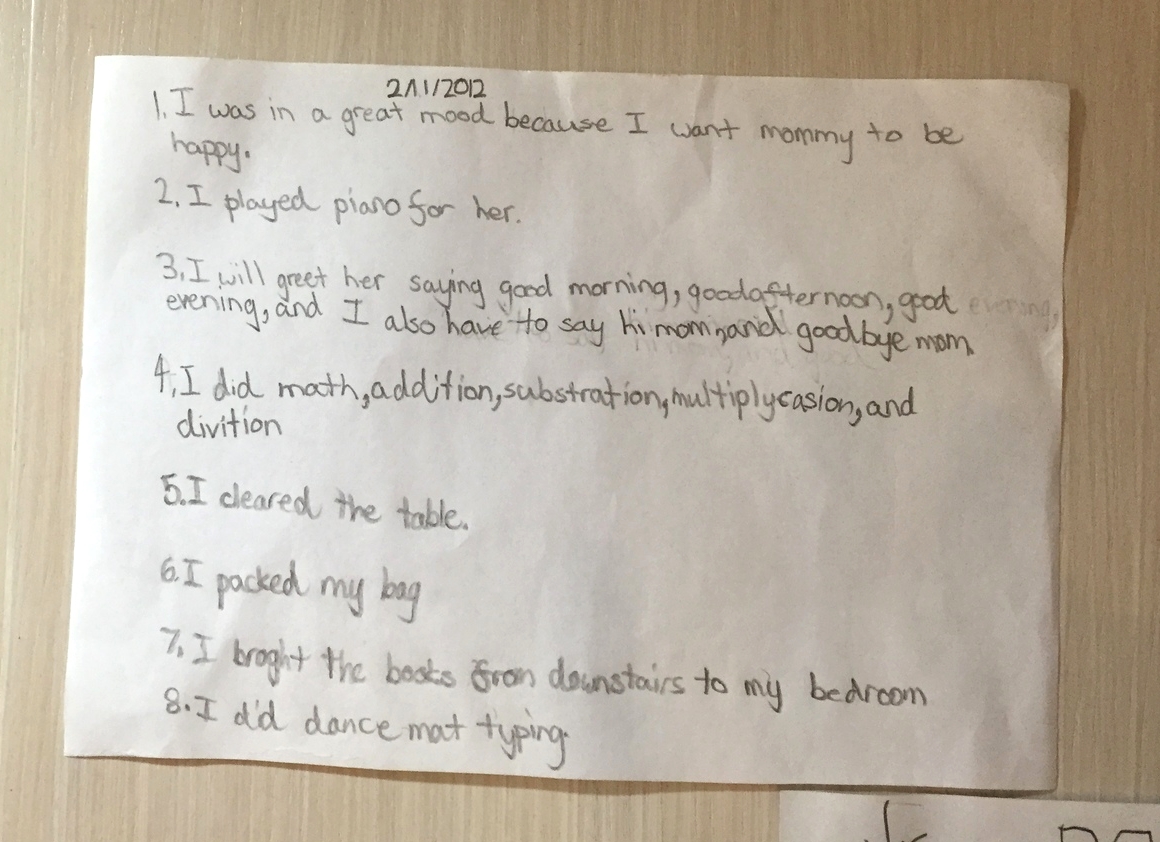 2/11/2012
1. I was in a great mood because I want mommy to be
happy.
2. I played piano for her.
3. I will greet her saying good morning, good afternoon, good evening,
evening, and I also have to say hi mom, and goodbye mom
4. I did math, addition, substration, multiplycasion, and
divition
5. I cleared the table.
6. I packed my bag
7. I broght the books from downstairs to my bedroom
8. I did dance mat typing.